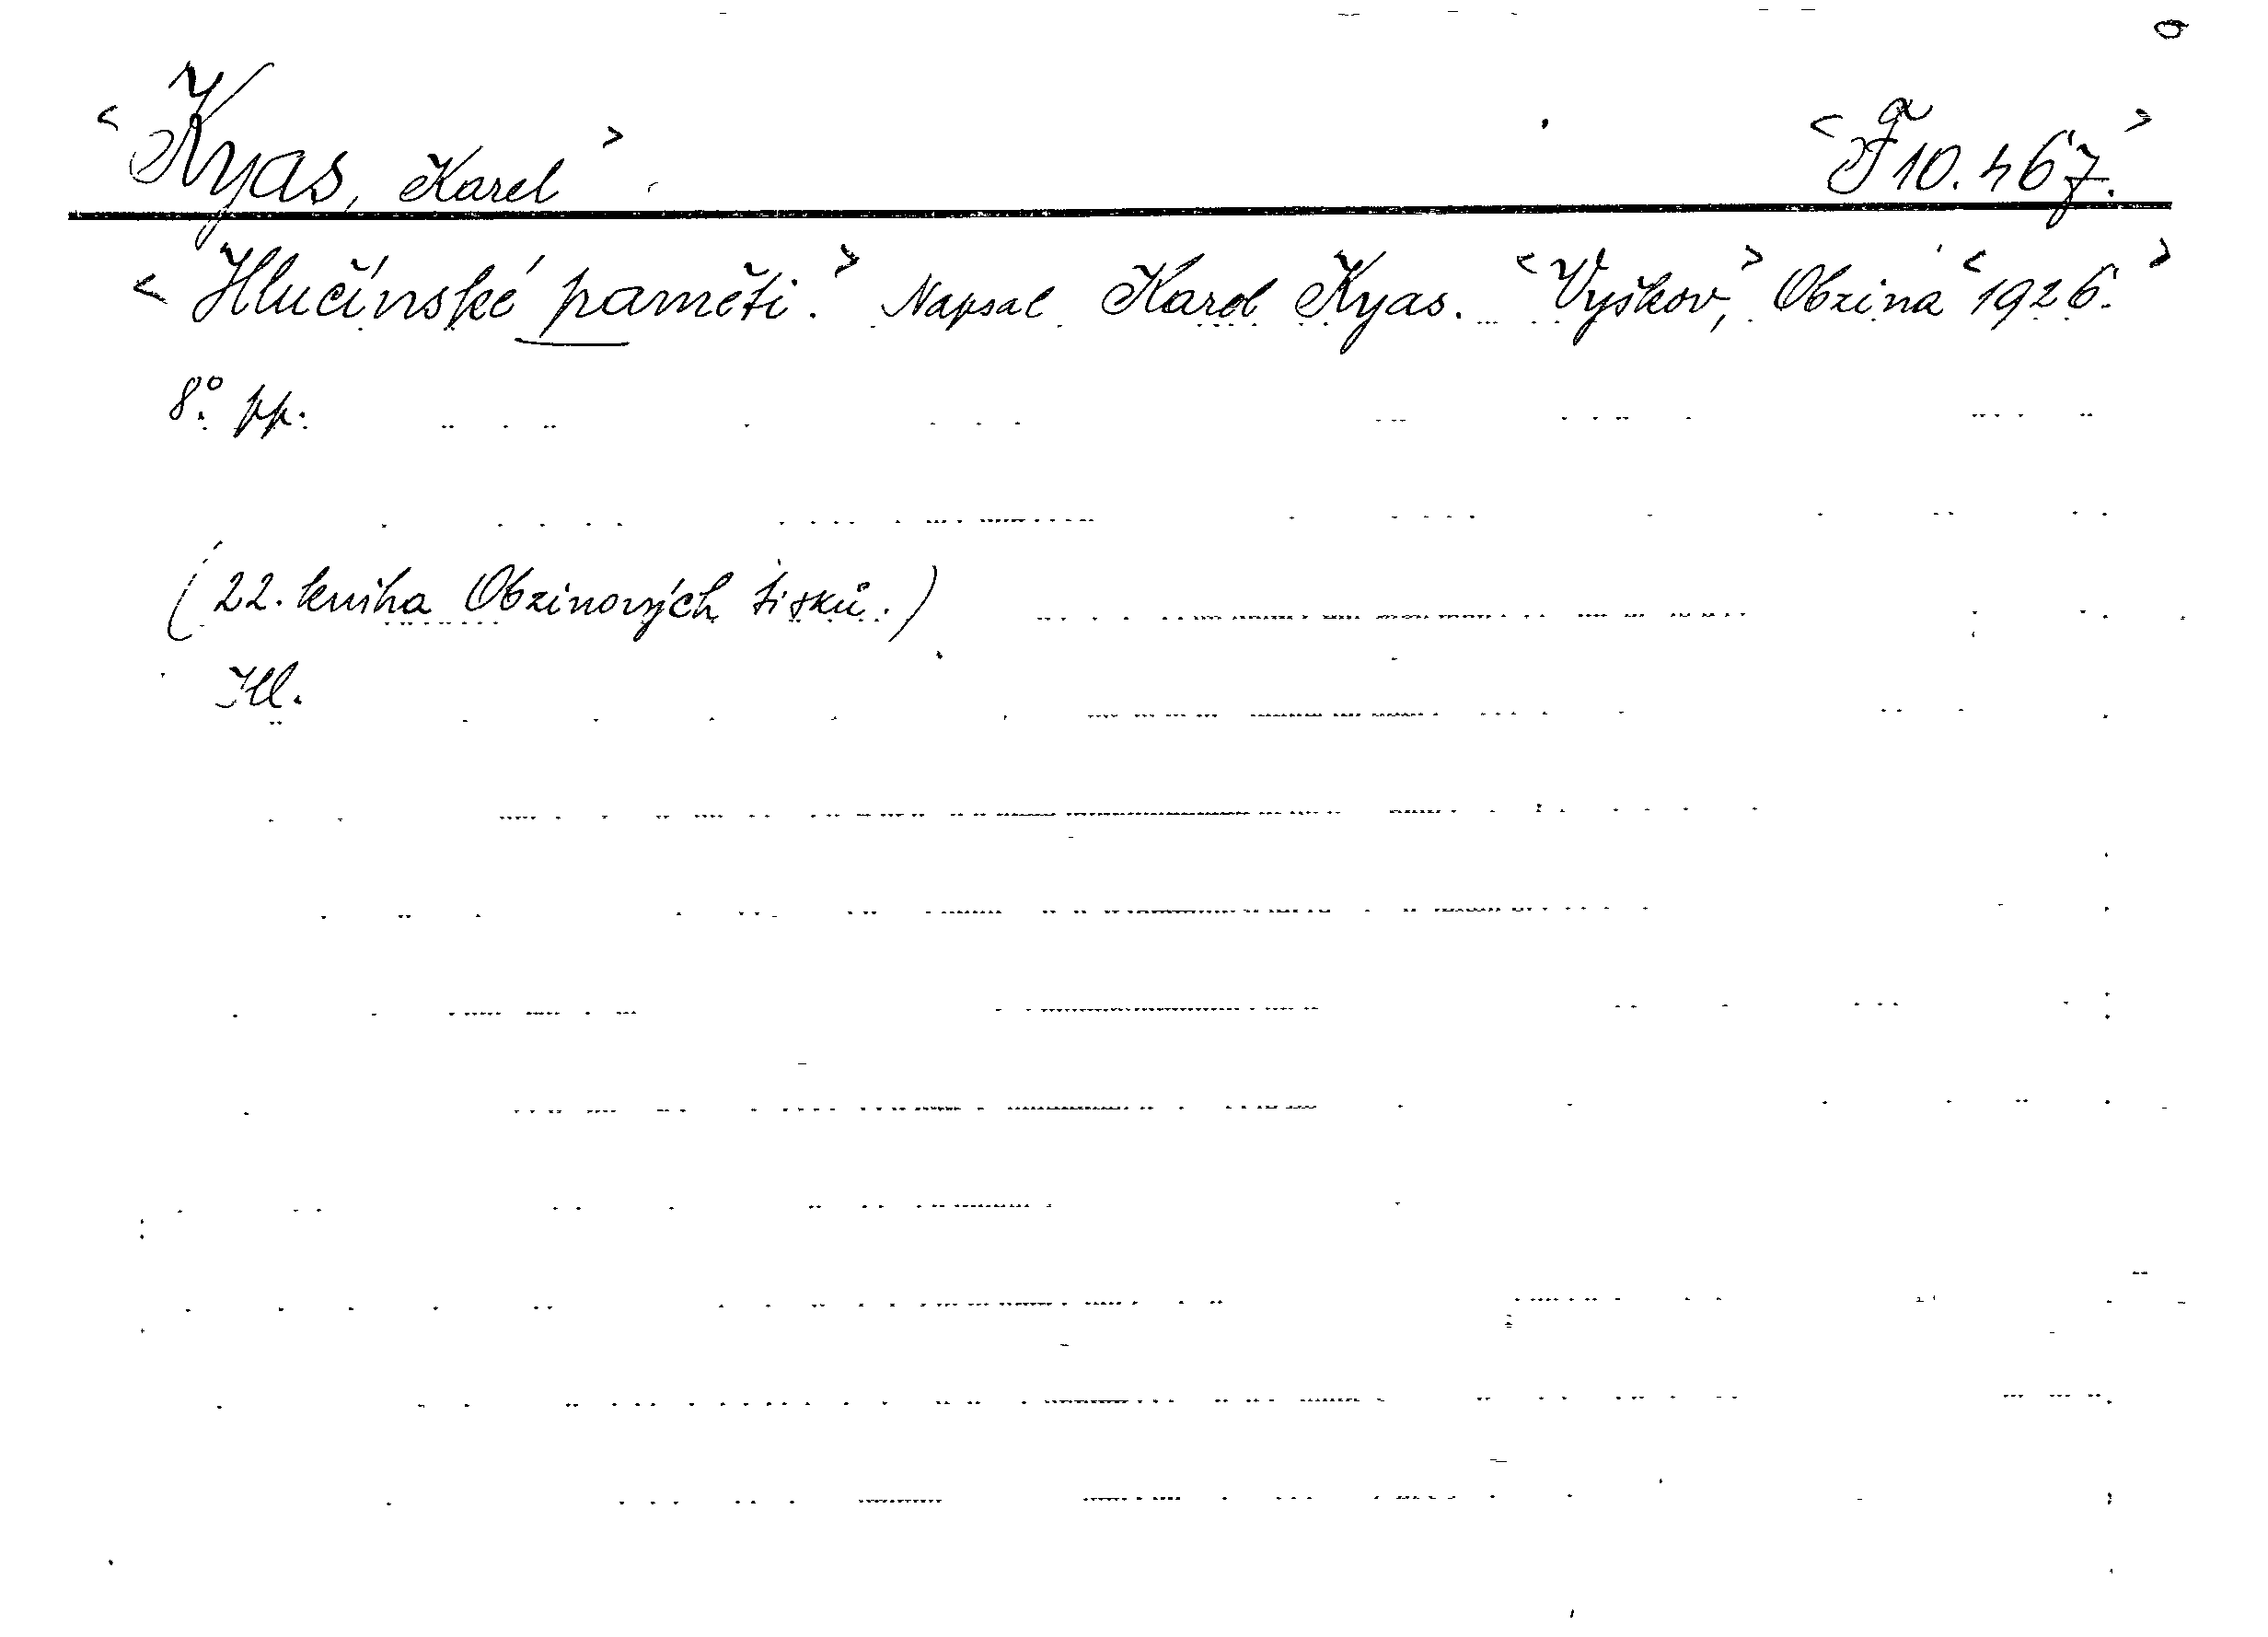 <Kyas, Karel> <F 10.467.>
<Hlučínské paměti.> Napsal Karel Kyas. <Vyškov,> Obzina <1926.>
8°. pp.
(22. kniha Obzinových tisků.)
Ill.